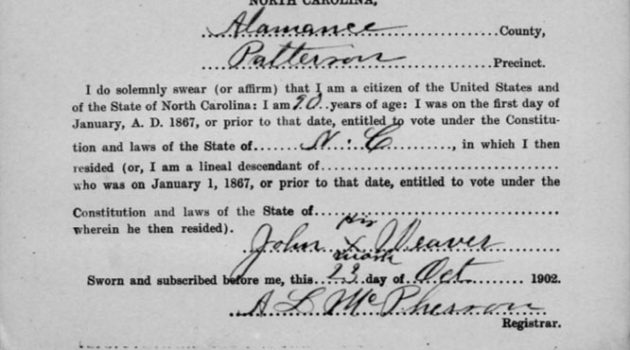 NORTH CAROLINA,
Alamance County,
Patterson Precinct.
I do solemnly swear (or affirm) that I am a citizen of the United States and
of the State of North Carolina: I am 90 years of age: I was on the first day of
January, A. D. 1867, or prior to that date, entitled to vote under the Constitu-
tion and laws of the State of N. C, in which I then
resided (or, I am a lineal descendant of
who was on January 1, 1867, or prior to that date, entitled to vote under the
Constitution and laws of the State of
wherein he then resided).
his
John X Weaver
mark
Sworn and subscribed before me, this 23 day of Oct. 1902.
A L McPherson
Registrar.